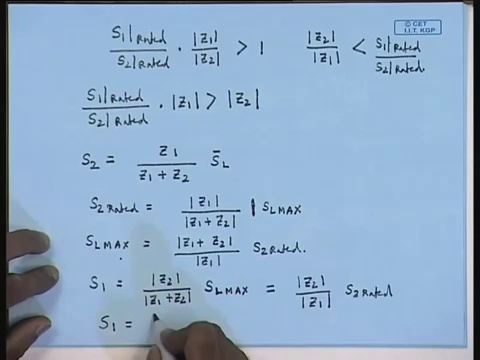 © CET
I.I.T. KGP
S1|Rated / S2|Rated · |Z1| / |Z2| > 1    |Z2| / |Z1| < S1|Rated / S2|Rated.
S1|Rated / S2|Rated · |Z1| > |Z2|
S2 = Z1 / (Z1 + Z2) S̄L
S2 Rated = |Z1| / |Z1 + Z2| | SLMAX
SLMAX = |Z1 + Z2| / |Z1| S2 Rated.
S1 = |Z2| / |Z1 + Z2| SLMAX = |Z2| / |Z1| S2 Rated
S1 =